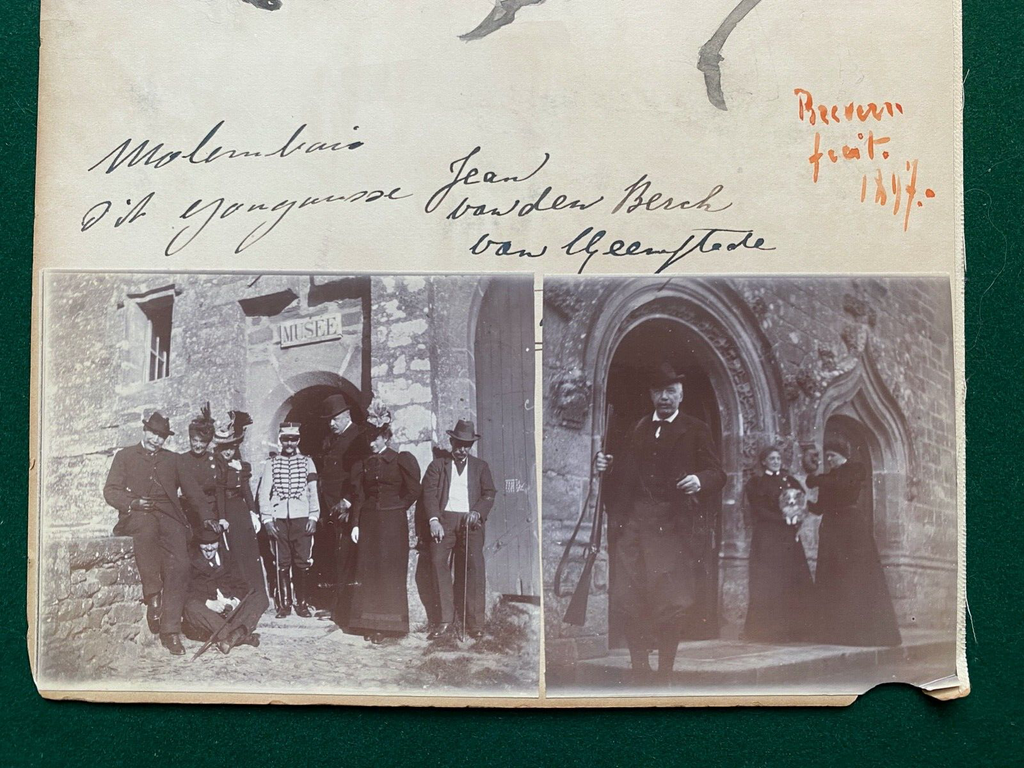 Molembais
dit Gangausse
Jean
van den Berch
van Heemstede
Beevern
fecit.
1897.
MUSÉE